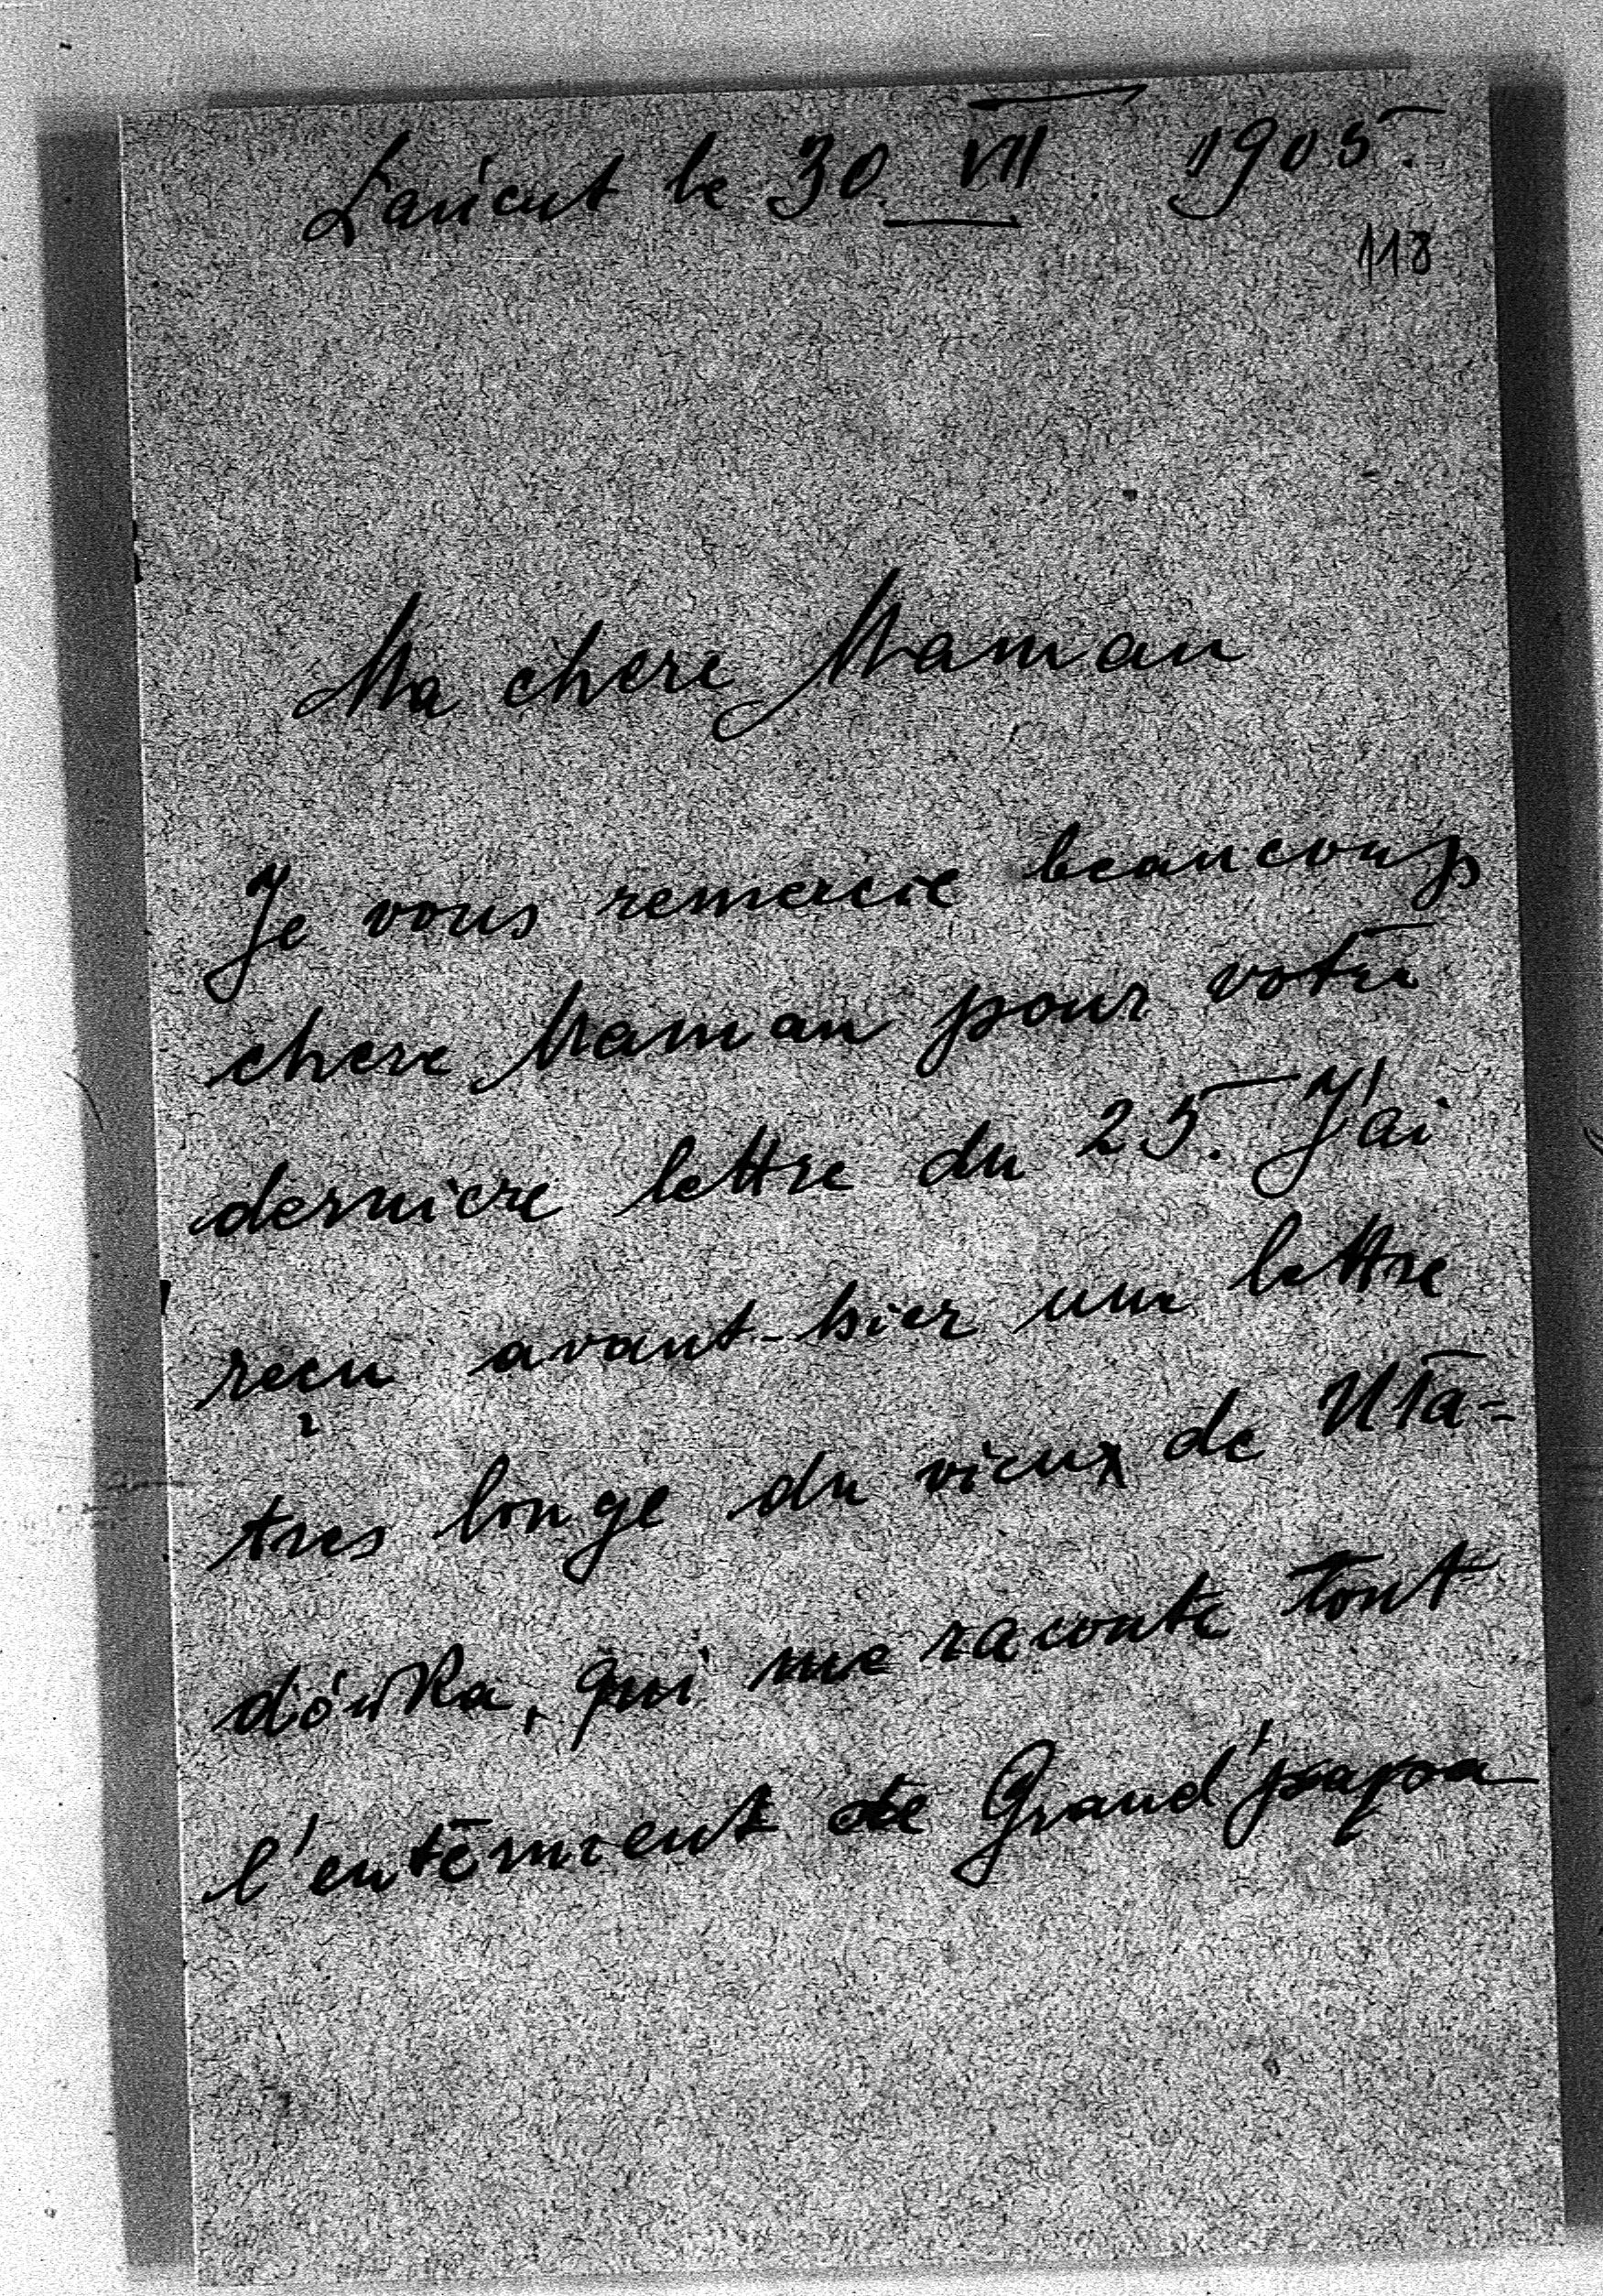 Łańcut le 30. VII. 1905.
118
Ma chere Maman
Je vous remercie beaucoup
chere Maman pour votre
derniere lettre du 25. J'ai
reçu avant-hier une lettre
tres longe du vieux de Wła-
dówka, qui me raconte tout
l'entêrment de Grand'papa